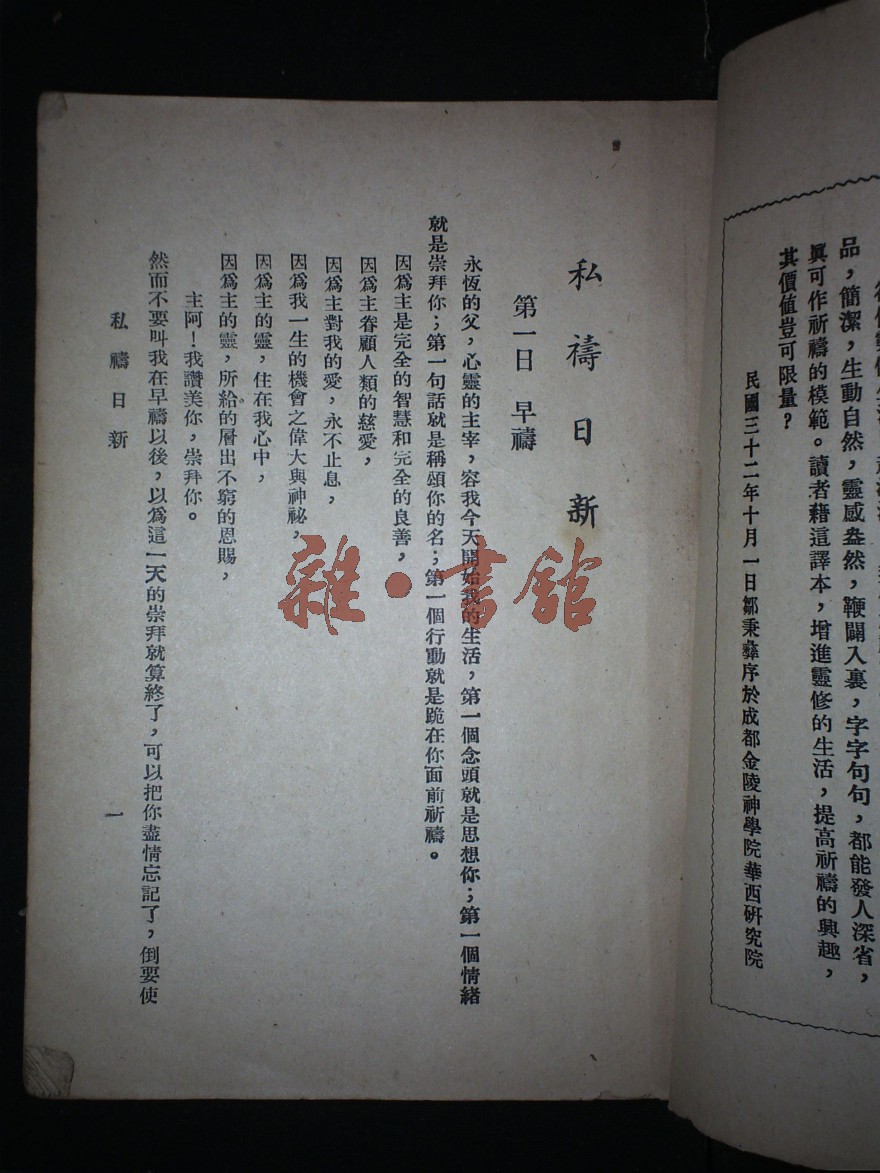 品，簡潔，生動自然，靈感盎然，鞭闢入裏，字字句句，都能發人深省，
興可作祈禱的模範。讀者藉這譯本，增進靈修的生活，提高祈禱的興趣，
其價值豈可限量？
民國三十二年十月一日鄒秉彝序於成都金陵神學院華西研究院
私禱日新
第一日 早禱
永恆的父，心靈的主宰，容我今天開始我的生活，第一個念頭就是思想你；第一個情緒
就是崇拜你；第一句話就是稱頌你的名；第一個行動就是跪在你面前祈禱。
因爲主是完全的智慧和完全的良善，
因爲主眷顧人類的慈愛，
因爲主對我的愛，永不止息，
因爲我一生的機會之偉大與神祕，
因爲主的靈，住在我心中，
因爲主的靈，所給的層出不窮的恩賜，
主阿！我讚美你，崇拜你。
然而不要叫我在早禱以後，以爲這一天的崇拜就算終了，可以把你盡情忘記了，倒要使
私禱日新
一
雜·書館